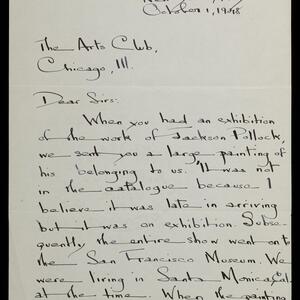 October 1, 1948
The Arts Club,
Chicago, Ill.
Dear Sirs:
When you had an exhibition
of the work of Jackson Pollock,
we sent you a large painting of
his belonging to us. It was not
in the catalogue because I
believe it was late in arriving
but it was on exhibition. Subse-
quently the entire show went on to
the San Francisco Museum. We
were living in Santa Monica, Cal.
at the time. When the painting